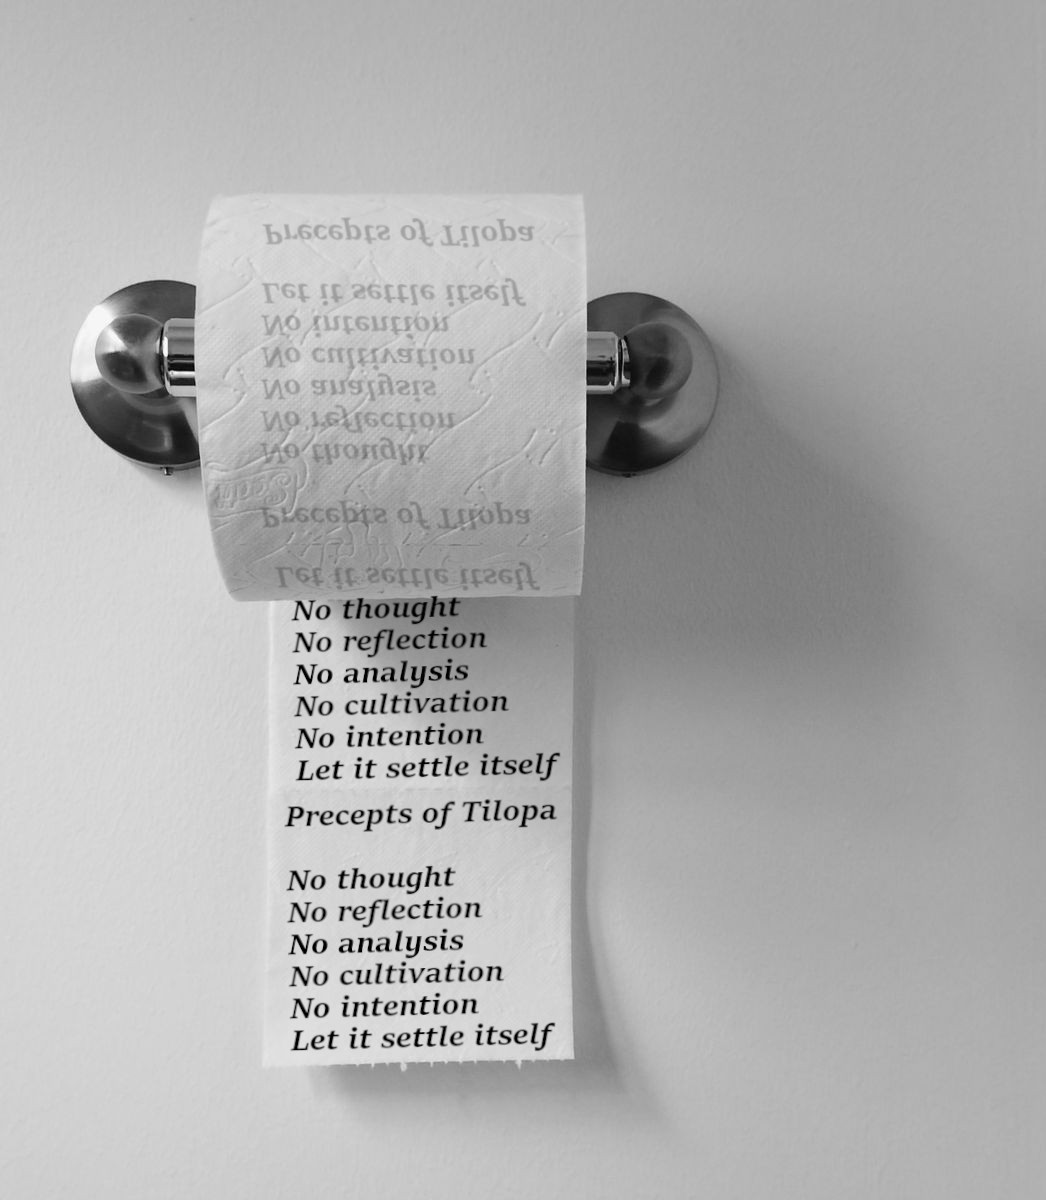 Precepts of Tilopa
Let it settle itself
No intention
No cultivation
No analysis
No reflection
No thought
Scott
Precepts of Tilopa
Let it settle itself
No thought
No reflection
No analysis
No cultivation
No intention
Let it settle itself
Precepts of Tilopa
No thought
No reflection
No analysis
No cultivation
No intention
Let it settle itself